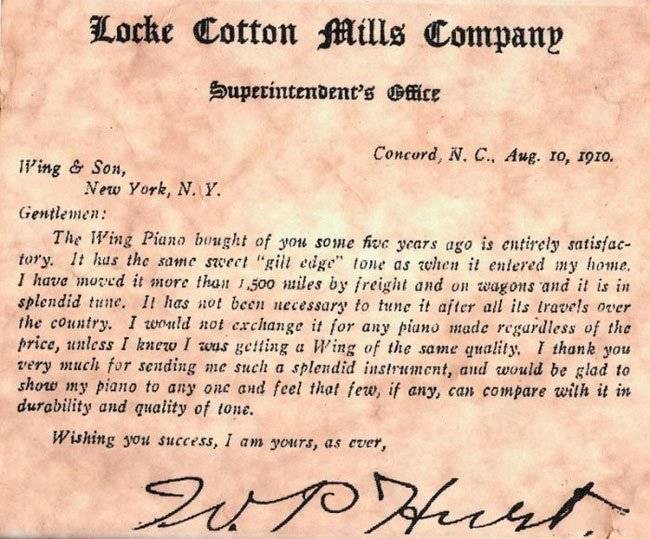 Locke Cotton Mills Company
Superintendent's Office
Concord, N. C., Aug. 10, 1910.
Wing & Son,
New York, N. Y.
Gentlemen:
The Wing Piano bought of you some five years ago is entirely satisfac-
tory. It has the same sweet "gilt edge" tone as when it entered my home.
I have moved it more than 1,500 miles by freight and on wagons and it is in
splendid tune. It has not been necessary to tune it after all its travels over
the country. I would not exchange it for any piano made regardless of the
price, unless I knew I was getting a Wing of the same quality. I thank you
very much for sending me such a splendid instrument, and would be glad to
show my piano to any one and feel that few, if any, can compare with it in
durability and quality of tone.
Wishing you success, I am yours, as ever,
W. P Hurst.